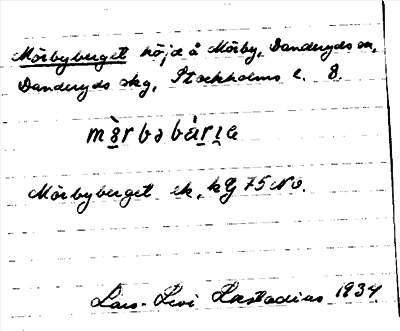 Mörbyberget höjd å Mörby, Danderyds sn,
Danderyds skg, Stockholms l. 8.
mö̀rbəbàrɪe
Mörbyberget ek. kbl 75 NO.
Lars-Levi Læstadius 1934